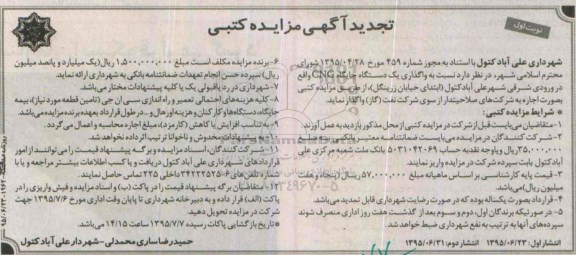 نوبت اول
تجدید آگهی مزایده کتبی
شهرداری علی آباد کتول با استناد به مجوز شماره ۴۵۹ مورخ ۱۳۹۵/۰۴/۲۸ شورای
محترم اسلامی شهر، در نظر دارد نسبت به واگذاری یک دستگاه جایگاه CNG واقع
در ورودی شرقی شهر علی آباد کتول (ابتدای خیابان زرینگل)، از طریق مزایده کتبی
بصورت اجاره به شرکت‌های صلاحیتدار از سوی شرکت نفت (گاز) واگذار نماید.
● شرایط مزایده کتبی:
۱- متقاضیان می‌بایست قبل از شرکت در مزایده کتبی از محل مذکور بازدید به عمل آورند.
۲- شرکت کنندگان در مزایده می‌بایست ضمانتنامه معتبر بانکی
۳۵,۰۰۰,۰۰۰ ریال و یا وجه نقد به حساب ۵۰۳۱۰۴۲۰۶۹ بانک ملت شعبه مرکزی علی
آباد کتول بابت سپرده شرکت در مزایده واریز نمایند.
۳- قیمت پایه کارشناسی بر اساس ماهیانه مبلغ ۵۷,۰۰۰,۰۰۰ ریال (پنجاه و هفت
میلیون ریال) می‌باشد.
۴- قرارداد بصورت یکساله بوده که در صورت رضایت شهرداری قابل تمدید می‌باشد.
۵- در صورتیکه برندگان اول، دوم و سوم بعد از گذشت هفت روز اداری منصرف شوند
سپرده‌های آنها به ترتیب به نفع شهرداری ضبط خواهد شد.
انتشار اول: ۱۳۹۵/۰۶/۲۳ انتشار دوم: ۱۳۹۵/۰۶/۳۱
۶- برنده مزایده مکلف است مبلغ ۱,۵۰۰,۰۰۰,۰۰۰ ریال (یک میلیارد و پانصد میلیون
ریال) سپرده حسن انجام تعهدات ضمانتنامه بانکی به شهرداری ارائه نماید.
۷- شهرداری در رد یا قبولی یک یا کلیه پیشنهادات مختار می‌باشد.
۸- کلیه هزینه‌های احتمالی تعمیر و راه اندازی سی ان جی (تامین قطعه مورد نیاز)، بیمه
جایگاه دستگاهها و کارکنان و هزینه اورهال و... در طول قرارداد بعهده برنده مزایده می‌باشد.
۹- به تناسب افزایش یا کاهش (کارمزد)، مبلغ اجاره محاسبه و اعمال می‌گردد.
۱۰- به پیشنهادات مخدوش و ناخوانا ترتیب اثر داده نخواهد شد.
۱۱- شرکت کنندگان، اسناد مزایده و برگه پیشنهاد قیمت را می‌توانند از امور
قراردادهای شهرداری علی آباد کتول دریافت و یا کسب اطلاعات بیشتر مراجعه و یا با
شماره تلفن‌های ۶-۳۴۲۲۲۵۲۵ داخلی ۲۲۵ تماس حاصل نمایند.
۱۲- متقاضیان برگه پیشنهاد قیمت را در پاکت (ب) و اسناد مزایده و فیش واریزی را در
پاکت (الف) قرار داده و به دبیرخانه شهرداری تا پایان وقت اداری مورخ ۱۳۹۵/۷/۶ جهت
شرکت در مزایده تحویل دهید.
● تاریخ بازگشایی پاکات رسیده ۱۳۹۵/۷/۷ ساعت ۱۴/۱۵ می‌باشد.
حمیدرضا ساری محمدلی - شهردار علی آباد کتول